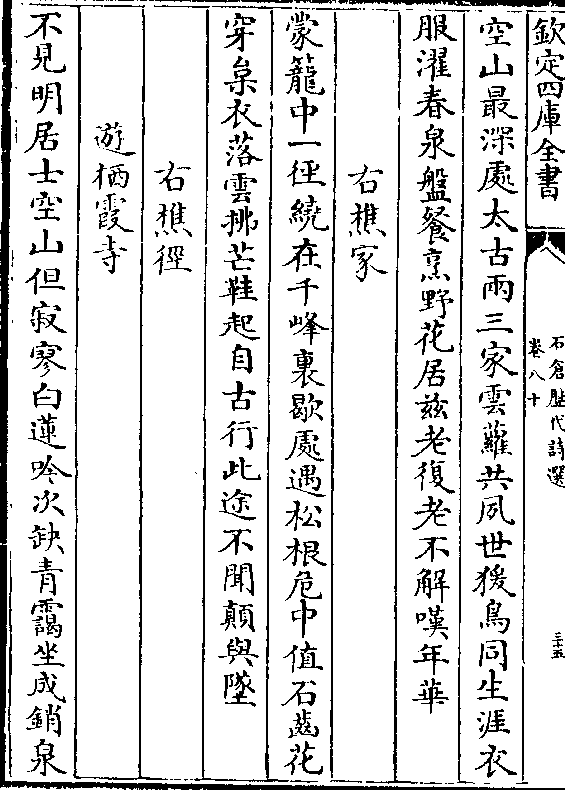 欽定四庫全書
石倉歴代詩選
卷八十
三十五
空山最深處太古兩三家雲蘿共夙世猨鳥同生涯衣
服濯春泉盤餐烹野花居兹老復老不解嘆年華
右樵家
蒙籠中一徑繞在千峰裏歇處遇松根危中值石齒花
穿枲衣落雲拂芒鞋起自古行此途不聞顛與墜
右樵徑
遊栖霞寺
不見明居士空山但寂寥白蓮吟次缺青靄坐成銷泉